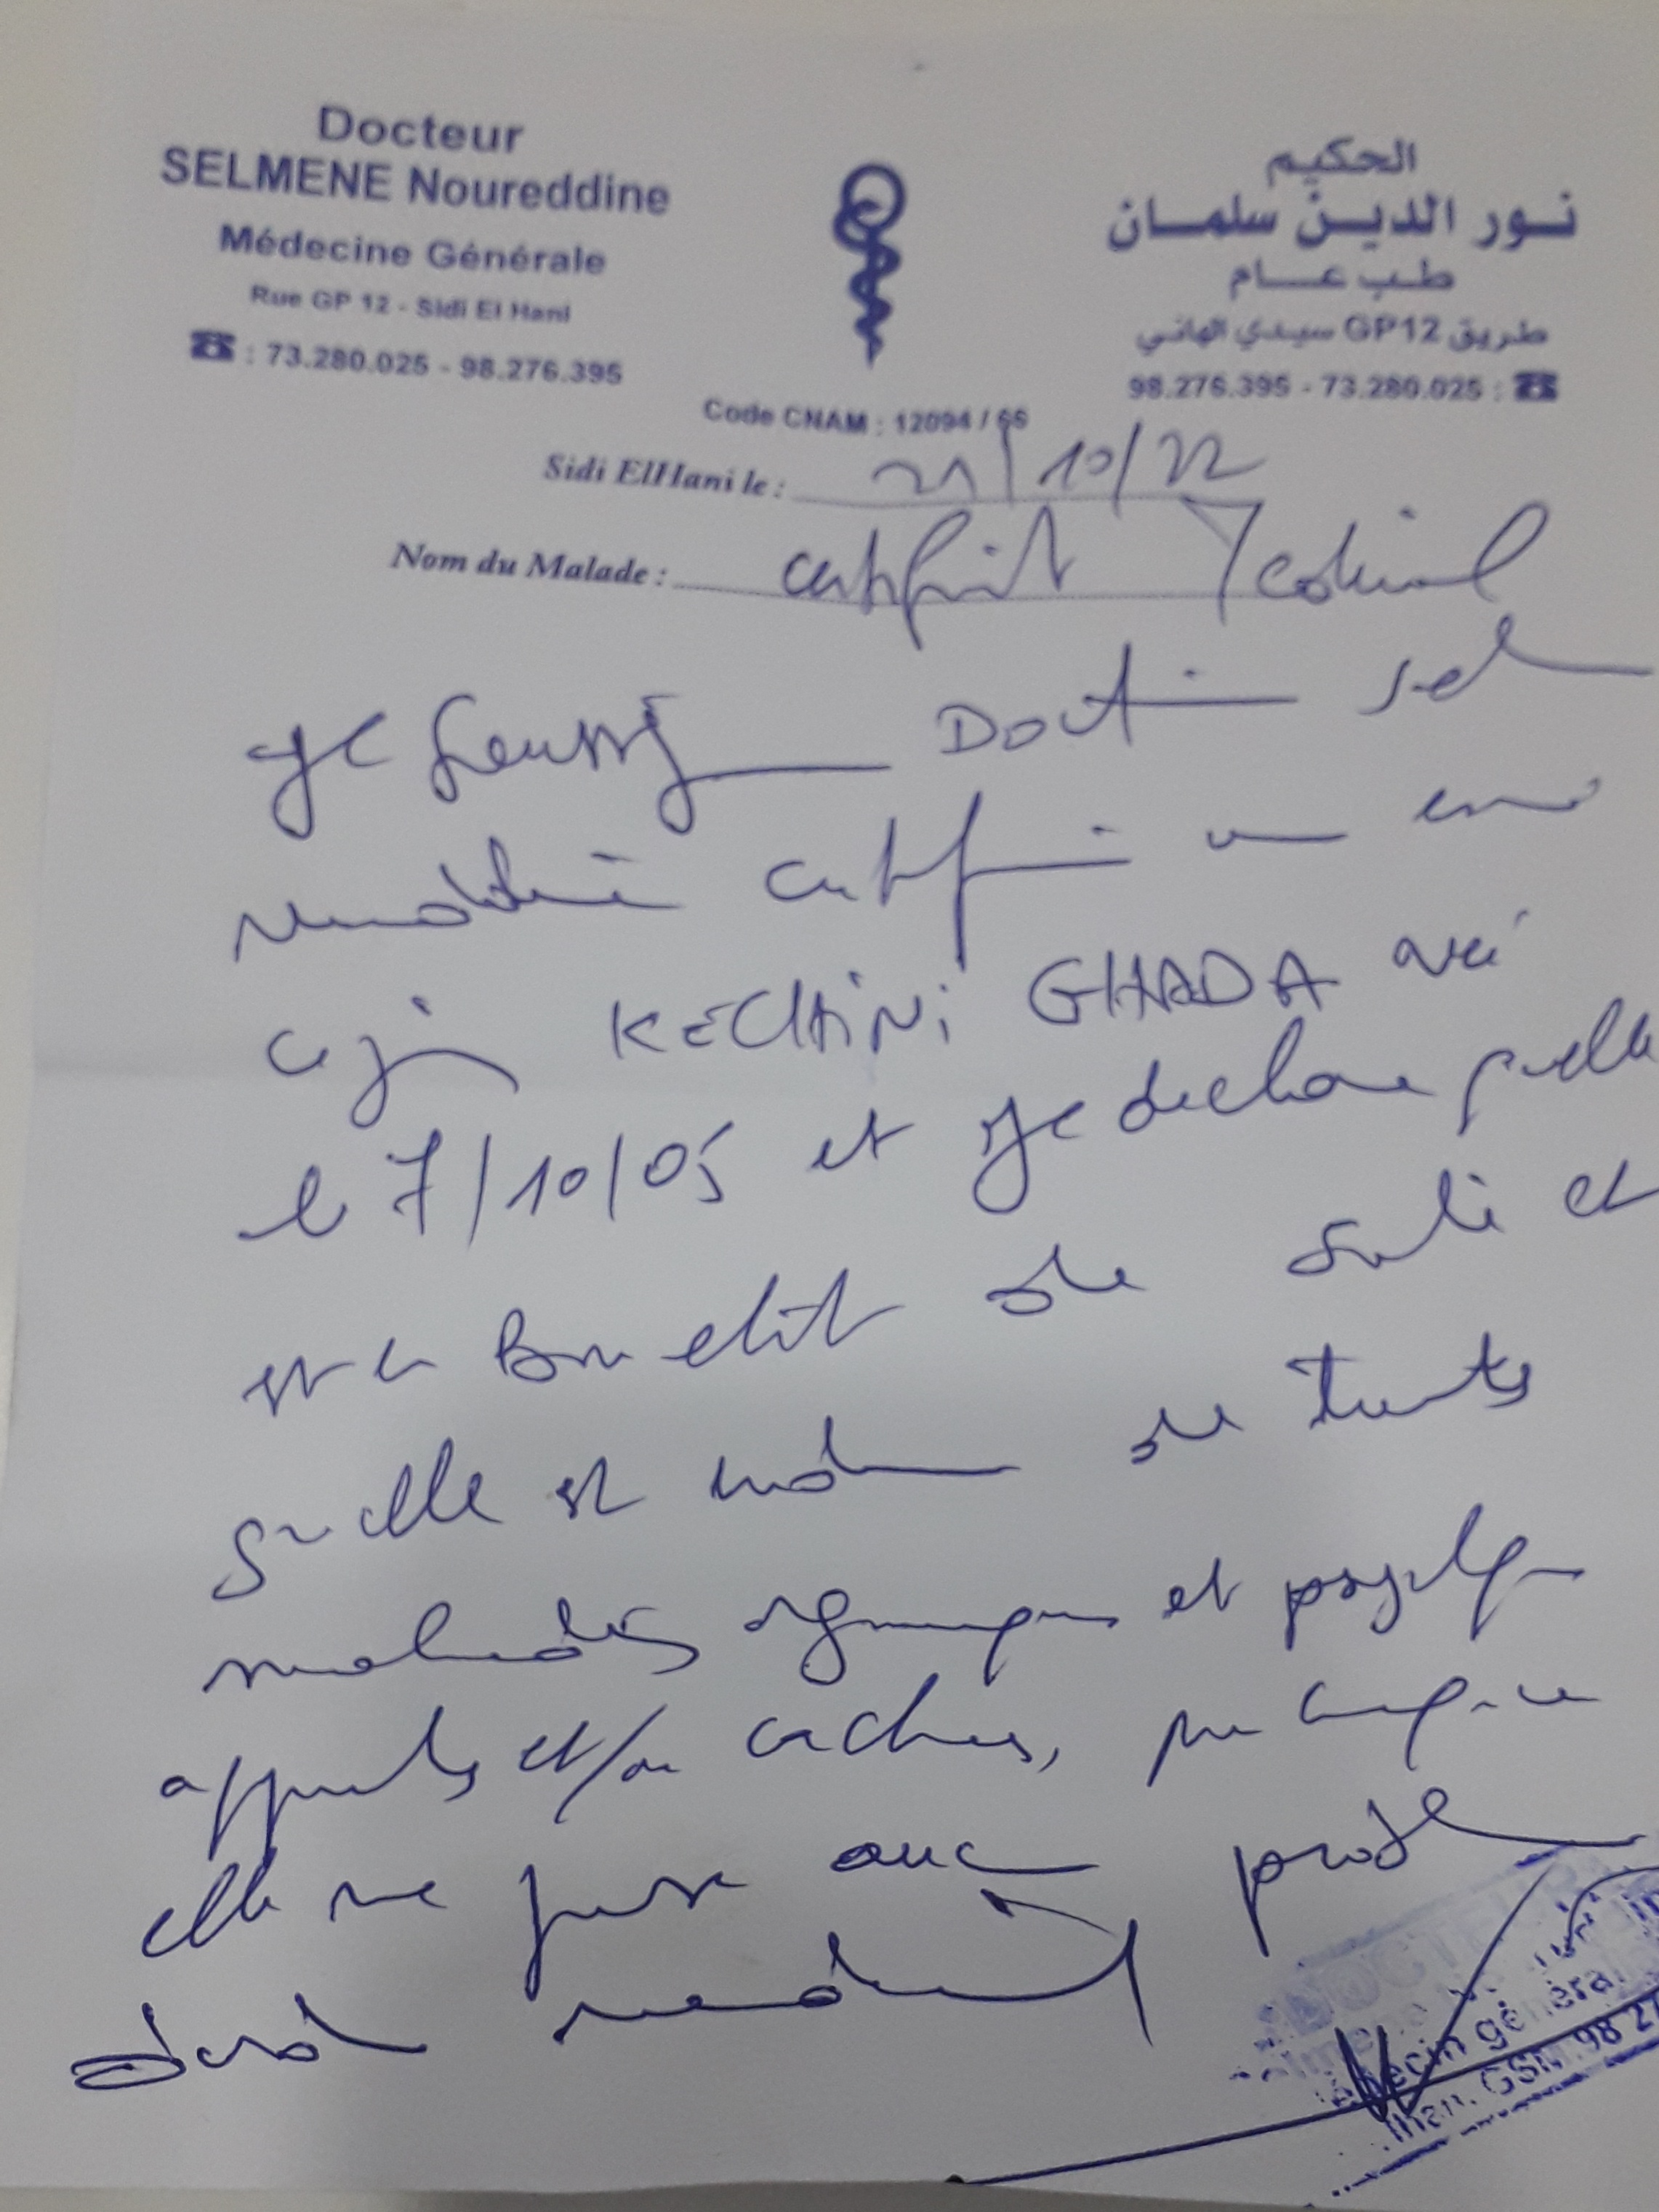 Docteur
SELMENE Noureddine
Médecine Générale
Rue GP 12 - Sidi El Hani
☎ : 73.280.025 - 98.276.395
الحكيم
نور الدين سلمان
طب عام
طريق GP12 سيدي الهاني
98.276.395 - 73.280.025 : ☎
Code CNAM : 12094 / 66
Sidi ElHani le : 21/10/22
Nom du Malade : certificat medical
Je soussigné Docteur
certifie
ce jour KECHINI GHADA née
le 7/10/05 et je declare quelle
est en bon etat de santé et
quelle est indemne de toutes
maladies organiques et psychique
apparentes et/ou cachées,
elle ne pose aucun problème
d'ordre
DOCTEUR
Médecin général
GSM: 98 27